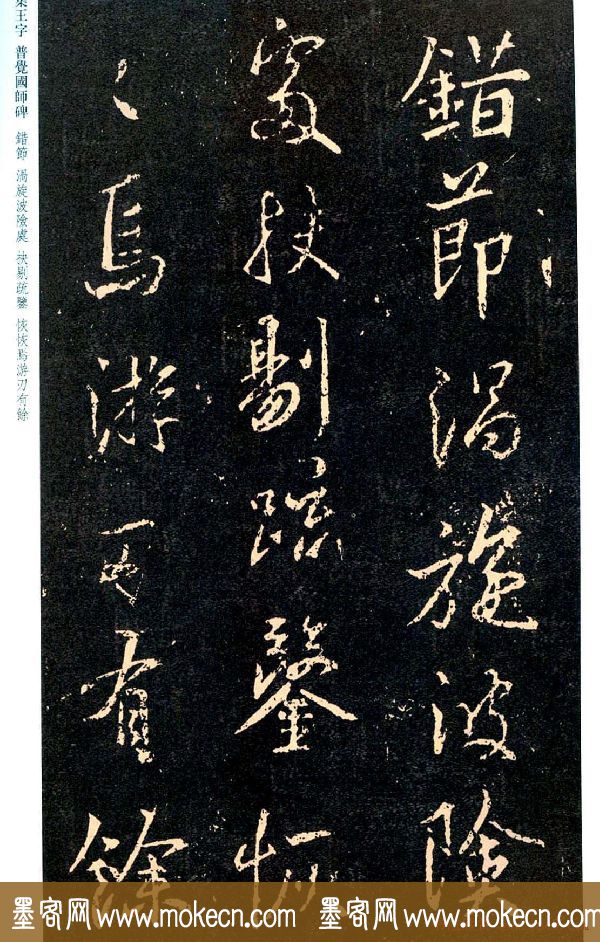 錯節渦旋波險
處抉剔疏鑿恢
〻焉游刃有餘
集王字 普覺國師碑 錯節 渦旋波險處 抉剔疏鑿 恢恢焉游刃有餘
墨客网 www.mokecn.com 墨客网 www.mokecn.com